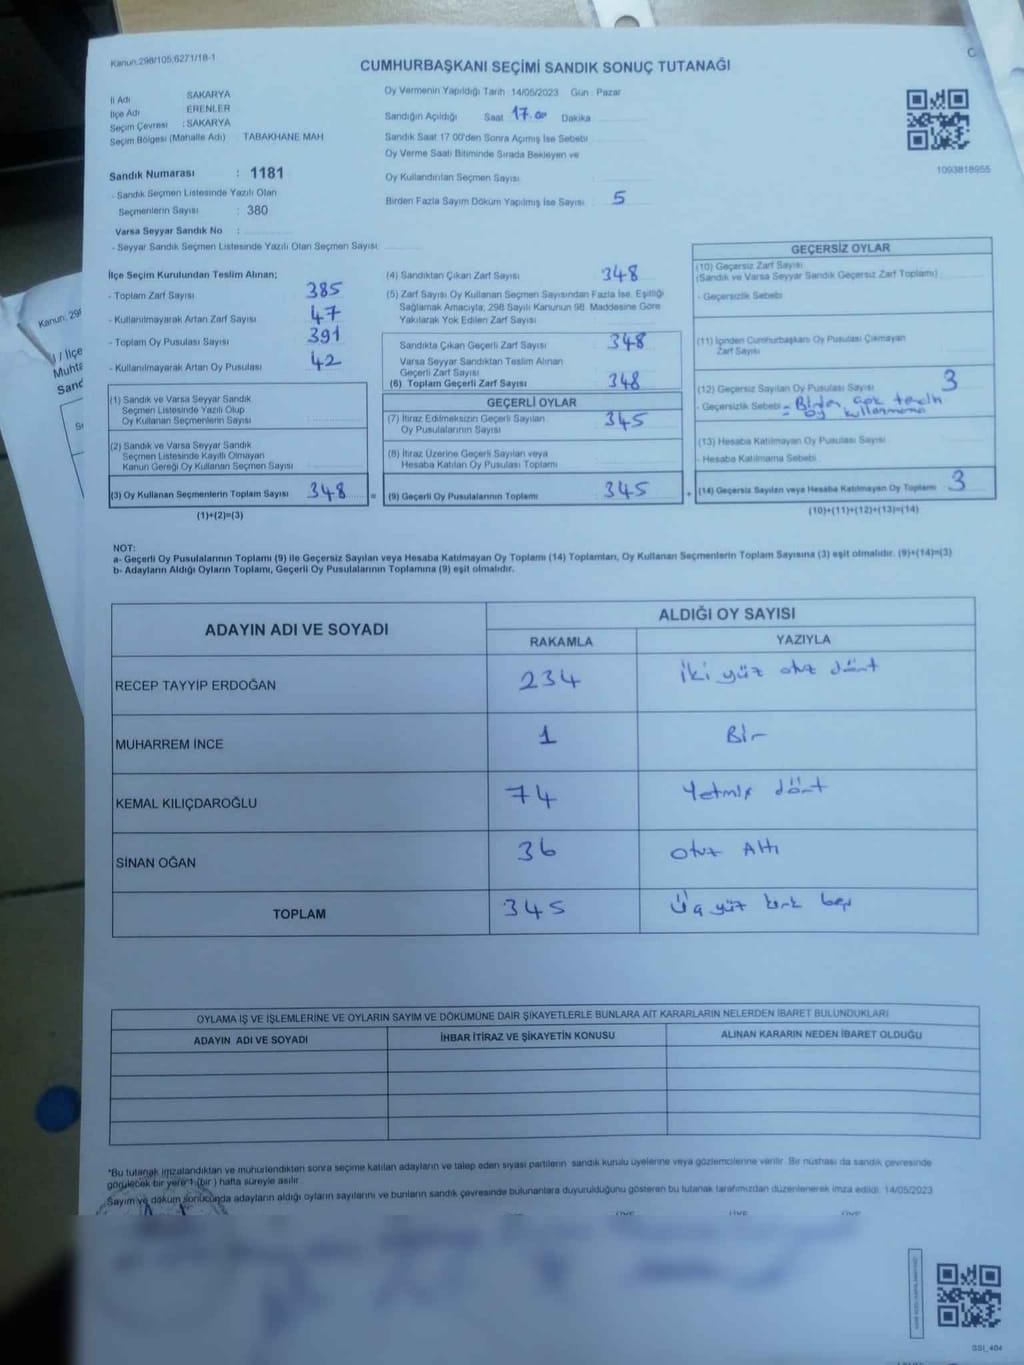 Kanun:298/105;6271/18-1
C
CUMHURBAŞKANI SEÇİMİ SANDIK SONUÇ TUTANAĞI
İl Adı SAKARYA
İlçe Adı ERENLER
Seçim Çevresi : SAKARYA
Seçim Bölgesi (Mahalle Adı) TABAKHANE MAH
Oy Vermenin Yapıldığı Tarih :14/05/2023 Gün : Pazar
Sandığın Açıldığı Saat 17.00 Dakika
Sandık Saat 17.00'den Sonra Açımış İse Sebebi
Oy Verme Saati Bitiminde Sırada Bekleyen ve
Oy Kullandırılan Seçmen Sayısı
Birden Fazla Sayım Döküm Yapılmış İse Sayısı : 5
1093818955
Sandık Numarası : 1181
- Sandık Seçmen Listesinde Yazılı Olan
Seçmenlerin Sayısı : 380
Varsa Seyyar Sandık No :
- Seyyar Sandık Seçmen Listesinde Yazılı Olan Seçmen Sayısı:
İlçe Seçim Kurulundan Teslim Alınan;
- Toplam Zarf Sayısı 385
- Kullanılmayarak Artan Zarf Sayısı 47
- Toplam Oy Pusulası Sayısı 391
- Kullanılmayarak Artan Oy Pusulası 42
(1) Sandık ve Varsa Seyyar Sandık
Seçmen Listesinde Yazılı Olup
Oy Kullanan Seçmenlerin Sayısı
(2) Sandık ve Varsa Seyyar Sandık
Seçmen Listesinde Kayıtlı Olmayan
Kanun Gereği Oy Kullanan Seçmen Sayısı
(3) Oy Kullanan Seçmenlerin Toplam Sayısı 348 =
(1)+(2)=(3)
(4) Sandıktan Çıkan Zarf Sayısı 348
(5) Zarf Sayısı Oy Kullanan Seçmen Sayısından Fazla İse, Eşitliği
Sağlamak Amacıyla; 298 Sayılı Kanunun 98. Maddesine Göre
Yakılarak Yok Edilen Zarf Sayısı :
Sandıkta Çıkan Geçerli Zarf Sayısı : 348
Varsa Seyyar Sandıktan Teslim Alınan
Geçerli Zarf Sayısı
(6) Toplam Geçerli Zarf Sayısı : 348
GEÇERLİ OYLAR
(7) İtiraz Edilmeksizin Geçerli Sayılan
Oy Pusulalarının Sayısı : 345
(8) İtiraz Üzerine Geçerli Sayılan veya
Hesaba Katılan Oy Pusulası Toplamı
(9) Geçerli Oy Pusulalarının Toplamı : 345 +
GEÇERSİZ OYLAR
(10) Geçersiz Zarf Sayısı
(Sandık ve Varsa Seyyar Sandık Geçersiz Zarf Toplamı)
- Geçersizlik Sebebi
(11) İçinden Cumhurbaşkanı Oy Pusulası Çıkmayan
Zarf Sayısı
(12) Geçersiz Sayılan Oy Pusulası Sayısı 3
- Geçersizlik Sebebi - Birden çok tercih
- oy kullanma
(13) Hesaba Katılmayan Oy Pusulası Sayısı
- Hesaba Katılmama Sebebi
(14) Geçersiz Sayılan veya Hesaba Katılmayan Oy Toplamı 3
(10)+(11)+(12)+(13)=(14)
NOT:
a- Geçerli Oy Pusulalarının Toplamı (9) ile Geçersiz Sayılan veya Hesaba Katılmayan Oy Toplamı (14) Toplamları, Oy Kullanan Seçmenlerin Toplam Sayısına (3) eşit olmalıdır. (9)+(14)=(3)
b- Adayların Aldığı Oyların Toplamı, Geçerli Oy Pusulalarının Toplamına (9) eşit olmalıdır.
ADAYIN ADI VE SOYADI ALDIĞI OY SAYISI
RAKAMLA YAZIYLA
RECEP TAYYİP ERDOĞAN 234 iki yüz otuz dört
MUHARREM İNCE 1 Bir
KEMAL KILIÇDAROĞLU 74 Yetmiş dört
SİNAN OĞAN 36 otuz Altı
TOPLAM 345 Üç yüz kırk beş
OYLAMA İŞ VE İŞLEMLERİNE VE OYLARIN SAYIM VE DÖKÜMÜNE DAİR ŞİKAYETLERLE BUNLARA AİT KARARLARIN NELERDEN İBARET BULUNDUKLARI
ADAYIN ADI VE SOYADI İHBAR İTİRAZ VE ŞİKAYETİN KONUSU ALINAN KARARIN NEDEN İBARET OLDUĞU
*Bu tutanak imzalandıktan ve mühürlendikten sonra seçime katılan adayların ve talep eden siyasi partilerin sandık kurulu üyelerine veya gözlemcilerine verilir. Bir nüshası da sandık çevresinde
görülecek bir yere 1 (bir ) hafta süreyle asılır.
Sayım ve döküm sonucunda adayların aldığı oyların sayılarını ve bunların sandık çevresinde bulunanlara duyurulduğunu gösteren bu tutanak tarafımızdan düzenlenerek imza edildi. 14/05/2023
ÜYE ÜYE ÜYE
GSI_404
Kanun: 298
/ İlçe
Muhta
Sand